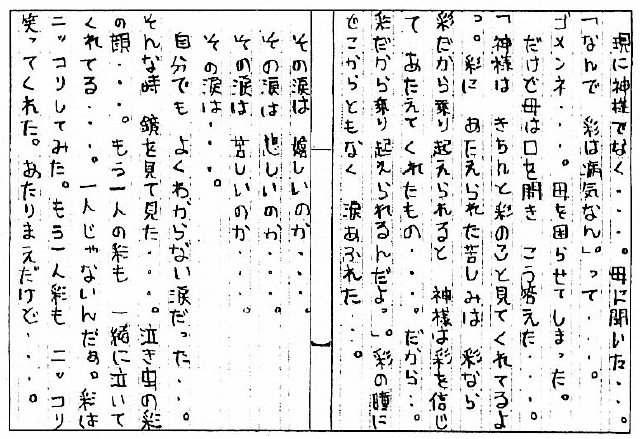 現に神様でなく・・・・。母に聞いた・・・。
「なんで 彩は病気なん。」って・・・・。
ゴメンネ・・・・。母を困らせてしまった。
だけど母は口を開き こう答えた・・・・。
「神様は きちんと彩のこと見てくれてるよ
っ。彩に あたえられた苦しみは 彩なら
彩だから乗り起えられると 神様は彩を信じ
て あたえてくれたもの・・・・。だから・・。
彩だから乗り起えられるんだよっ」。彩の瞳に
どこからともなく 涙あふれた・・・。
その涙は 嬉しいのか・・・・。
その涙は 悲しいのか・・・・。
その涙は 苦しいのか・・・・。
その涙は・・・・。
自分でも よくわからない涙だった・・・。
そんな時 鏡を見て見た・・・・。泣き虫の彩
の顔・・・・。もう一人の彩も 一緒に泣いて
くれてる・・・・。一人じゃないんだぁ。彩は
ニッコリしてみた。もう一人彩も ニッコリ
笑ってくれた。あたりまえだけど・・・・。